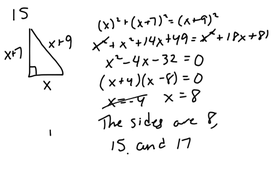 15
x+7
x+9
x
(x)²+(x+7)²=(x+9)²
x²+x²+14x+49=x²+18x+81
x²-4x-32=0
(x+4)(x-8)=0
x=-4 x=8
The sides are 8,
15, and 17